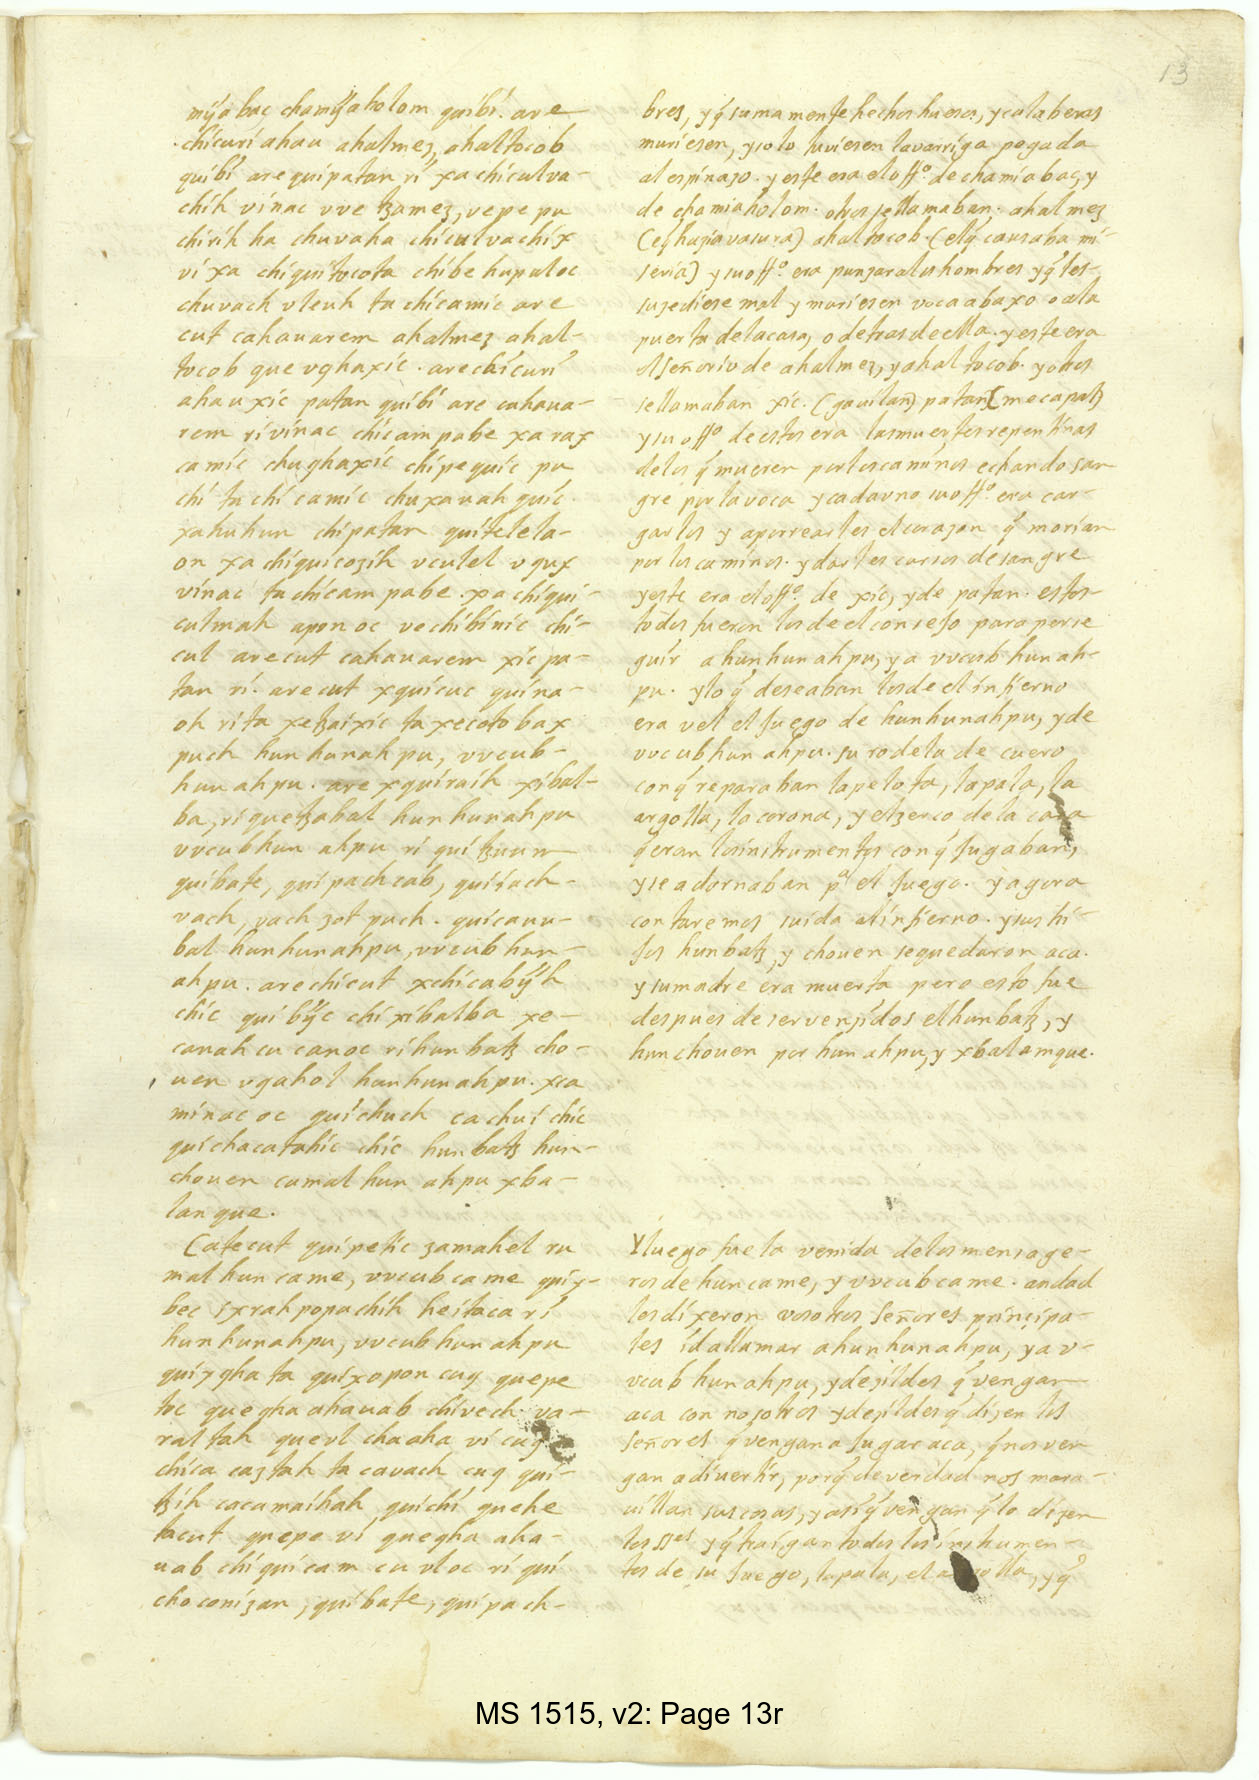 13
mÿa bac chamÿaholom quibi. are
chicuri ahau ahalmez, ahaltocob
quibi are quipatan ri xa chiculva-
chih vinac vve tzamez, vepe pu
chirih ha chuvaha chiculvachix
vi xa chiquitocota chibe hupuloc
chuvach vleuh ta chicamic are
cut cahauarem ahalmez ahal-
tocob que vghaxic. arechicuri
ahau xic patan quibi are cahaua-
rem ri vinac chicam pabe xa rax
camic chughaxic chipe quic pu
chi ta chi camic chuxauah quic.
xahuhun chipatan quitelela-
on xa chiquicozih vculel vqux
vinac ta chicam pabe. xa chiqui-
culmah apon oc vechibinic chi-
cul arecut cahauarem xic pa-
tan ri. are cut xquicuc quina-
oh ri ta xetzaixic ta xecotobax
puch hun hunahpu, vvcub-
hunahpu. are xquiraih xibal-
ba, ri quetzabal hun hunahpu
vvcub hun ahpu ri quitzuun
quibate, quipachcab, quisach-
vach, vach zot puch. quicauu-
bal hunhunahpu, vvcub hun-
ahpu. arechicut xchicabÿh
chic quibÿc chi xibalba xe-
canah cu canoc ri hun batz cho-
uen vgahol hunhunahpu. xca
minac oc quichuch cachui chic
quichacatahic chic hun batz hun-
chouen cumal hun ahpu xba-
lanque.
Catecut quipetic zamahel ru
mal hun came, vvcub came quix-
bec ix rahpopachih heitaca ri
hunhunahpu, vvcub hunahpu
quixgha ta quixopon cuq quepe
toc quegha ahauab chivech va-
ral tah quevl chaaha vi cuq
chica caztah ta cavach cuq qui-
tzih cacamaihah quichi quehe
tacut quepe vi quegha aha-
uab chiquicam cu vloc ri qui
choconizan, quibate, quipach-
bres, y q̃ sumamente hechos huesos, y calaberas
muriesen, y solo tuviesen la varriga pegada
al espinaso. y este era el offo. de chamiabac, y
de chamiaholom. otros se llamaban. ahalmez
(el q̃ hazia vasura) ahaltocob. (el q̃ causaba mi-
seria) y su offo. era punsar a los hombres y q̃ les-
susediese mal y muriesen voca abaxo o a la
puerta de la casa, o detras de ella. y este era
el señorio de ahalmez, y ahaltocob. y otros
se llamaban xic. (gavilan) patan [mecapatz
y su offo de estos era las muertes repentinas
de los q̃ mueren por los caminos echando san
gre por la voca y cada vno su offo. era car-
garlos y aporrearles el corason q̃ morian
por los caminos. y darles carsos de sangre
y este era el offo. de xic, y de patan. estos
todos fueron los de el consejo para perse
guir a hunhunahpu, y a vvcub hunah-
pu. y lo q̃ deseaban los de el infierno
era vel el juego de hunhunahpu, y de
vvcub hun ahpu. su rodela de cuero
con q̃ reparaban la pelota, la pala, la
argolla, la corona, y el zerco de la cara
q̃ eran los instrumentos con q̃ jugaban,
y se adornaban pa el juego. y agora
contaremos suida al infierno. y sus hi-
jos hunbatz, y chouen se quedaron aca.
y su madre era muerta pero esto fue
despues de ser vensidos el hunbatz, y
hunchouen por hun ahpu, y xbalamque.
Y luego fue la venida de los mensage-
ros de huncame, y vvcubcame. andad
les dixeron vosotros señores principa-
les id a llamar a hunhunahpu, y a v-
vcub hunahpu, y dezildes q̃ vengan
aca con nosotros y dezildes q̃ dizen los
señores q̃ vengan a jugar aca, q̃ nos ven
gan a divertir, porq̃ de verdad nos mara-
uillan sus cosas, y asi q̃ vengan q̃ lo dizen
los sses y q̃ traigan todos los instrumen-
tos de su juego, la pala, el argolla, y q̃
MS 1515, v2: Page 13r